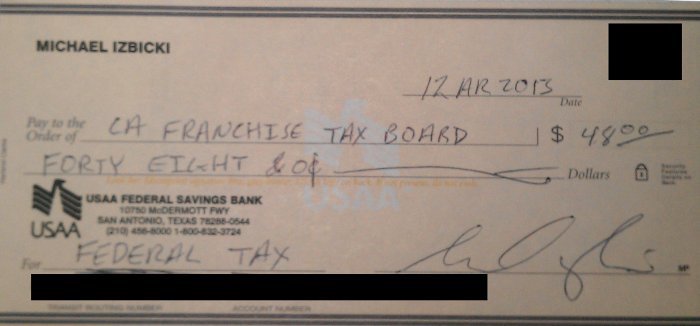 MICHAEL IZBICKI
12 AR 2013
Date
Pay to the
Order of CA FRANCHISE TAX BOARD $ 48 00
FORTY EIGHT & 0¢ Dollars
Security
Features
Details on
Back
USAA
USAA FEDERAL SAVINGS BANK
10750 McDERMOTT FWY
SAN ANTONIO, TEXAS 78288-0544
(210) 456-8000 1-800-832-3724
USAA
For FEDERAL TAX
MP
TRANSIT ROUTING NUMBER ACCOUNT NUMBER